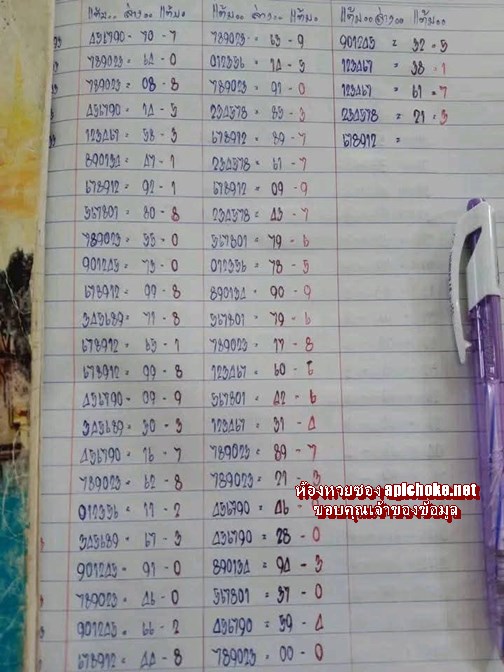 แต้ม.. ล่าง.. แต้ม. แต้ม.. ล่าง.. แต้ม. แต้ม.. ล่าง.. แต้ม..
456790 - 70 - 7 789023 = 63 - 9 901245 = 32 - 5
789023 = 64 - 0 012356 = 14 - 5 123467 = 38 - 1
789023 = 08 - 8 789023 = 91 - 0 123467 = 61 - 7
456790 = 14 - 5 234578 = 83 - 3 234578 = 21 - 3
123467 = 38 - 3 678912 = 89 - 7 678912 =
890134 = 47 - 1 234578 = 61 - 7
678912 = 92 - 1 678912 = 09 - 9
567801 = 80 - 8 234578 = 43 - 7
789023 = 55 - 0 567801 = 79 - 6
901245 = 73 - 0 012356 = 78 - 5
678912 = 99 - 8 890134 = 90 - 9
345689 = 71 - 8 567801 = 79 - 6
678912 = 65 - 1 789023 = 17 - 8
678912 = 99 - 8 123467 = 60 - 6
456790 = 09 - 9 567801 = 42 - 6
345689 = 30 - 3 123467 = 31 - 4
456790 = 16 - 7 789023 = 89 - 7
789023 = 82 - 8 789023 = 21 - 3
ห้องหวยซอง apichoke.net
012356 = 11 - 2 456790 = 46 - 0
ขอบคุณเจ้าของข้อมูล
345689 = 67 - 3 456790 = 28 - 0
901245 = 91 - 0 890134 = 94 - 3
789023 = 46 - 0 567801 = 37 - 0
901245 = 66 - 2 456790 = 59 - 4
678912 = 44 - 8 789023 = 00 - 0